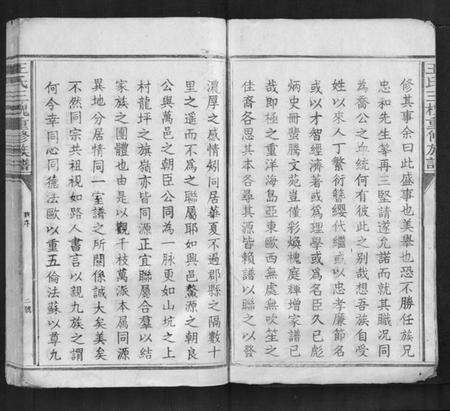 王氏三槐重修族譜
修其事余曰此盛事也美舉也恐不勝任族兄
忠和先生等再三堅請遂允諾而就其職况同
為喬公之血統何有彼此之別裁想吾族自受
姓以來人丁繁衍簪纓代繼或以忠孝廉節名
或以才智經濟著或為理學或為名臣久已彪
炳史冊奬騰文苑豈僅彩煥槐庭輝增家譜已
哉即極之重洋海島亞東歐西無處無吹笙之
佳裔各思其本各尋其源皆賴譜以聯之以聯
濃厚之感情矧同居華夏不過郡縣之隔數十
里之遥而不為之聯屬耶如興邑鰲源之朝良
公與萬邑之朝臣公同為一脉更如山坑之上
村龍坪之族嶺亦皆同源正宜聯屬合羣以結
家族之團體也由是以觀千枝萬派本属同源
異地分居情同一室譜之所關係誠大矣美矣
不然同宗共祖視如路人書言以親九族之謂
何今幸同心同德法歐以重五倫法蘇以尊九
王氏三槐重修族譜
新序
二號